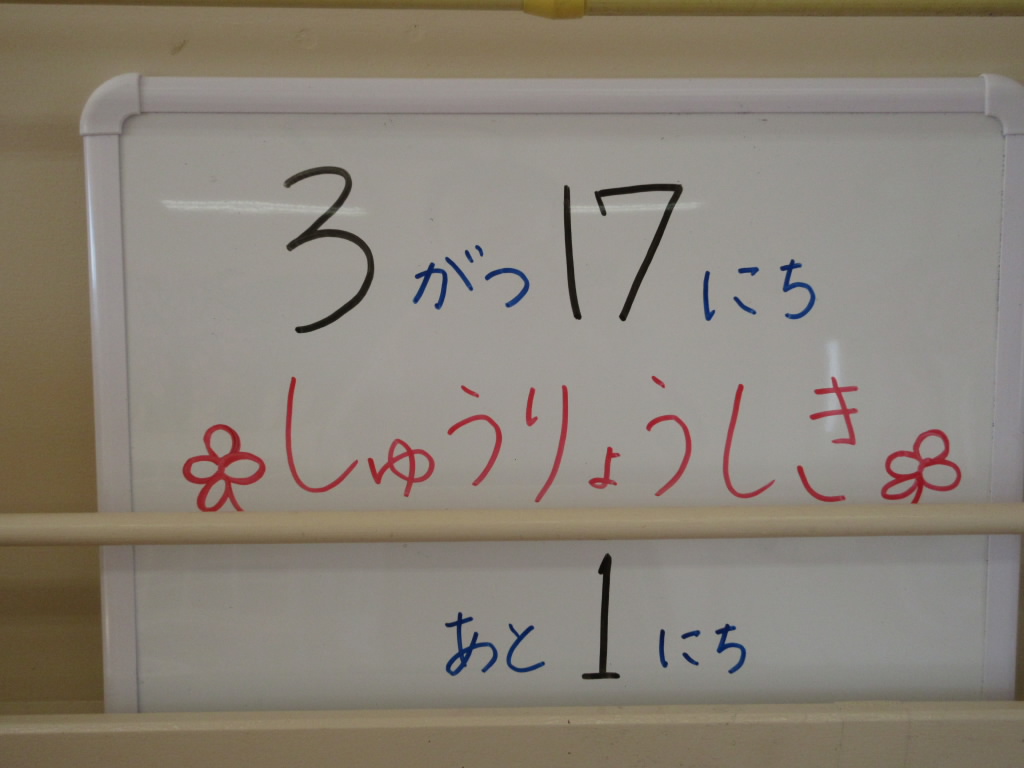 3がつ17にち
しゅうりょうしき
あと1にち